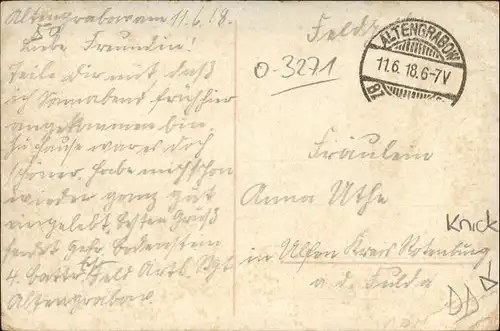 Altengrabow am 11.6.18.
Liebe Freundin!
Teile dir mit daß
ich Sonnabend früh hier
angekommen bin,
zu Hause war es doch
schöner. Habe mich schon
wieder ganz gut
eingelebt, besten Gruß
sendet Gefr. Bodenstein
4. Battr. Feld Artl. Rgt
Altengrabow
0-3271
ALTENGRABOW
11.6.18.6-7V
Fräulein
Anna Uthe
in Ulfen Kreis Rotenburg
a. d. Fulda
Knick